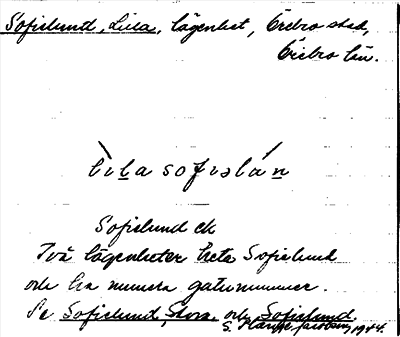 Sofielund, Lilla, lägenhet, Örebro stad,
Örebro län.
lìla sofiəlún
Sofielund ck
Två lägenheter heta Sofielund
och ha numera gatunummer.
Se Sofielund, Stora, och Sofielund.
S. 1944.